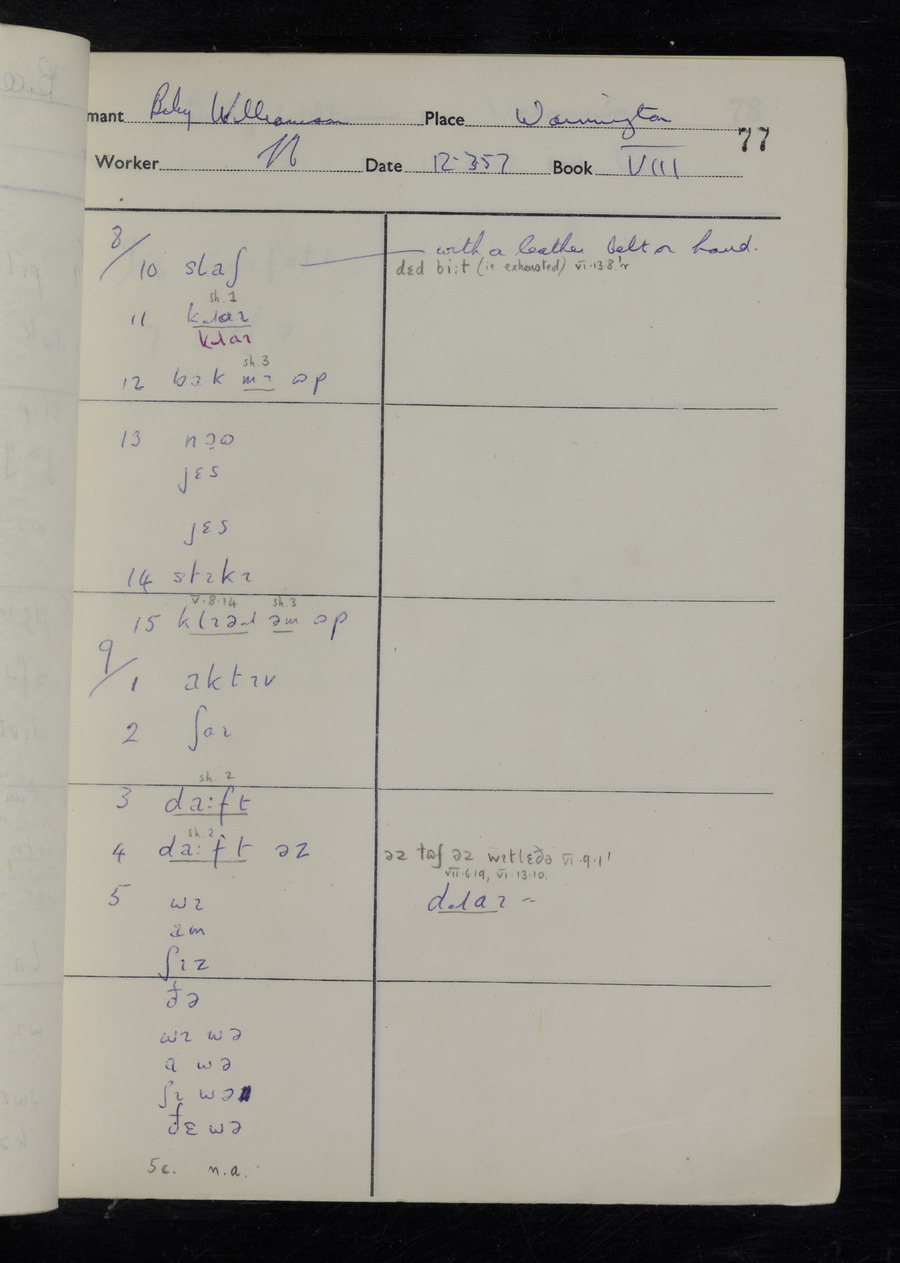 mant Billy Williamson Place Warmington
77
Worker Date 12·3·57 Book VIII
8/10 slaʃ with a leather belt or hand.
dɛd biːt (ie exhausted) VI·13·8.
sh. 1
11 kɹaɪ
kɹaɪ
sh. 3
12 bak mɪ ɷp
13 nɔɷ
jɛs
jɛs
14 stɪkɪ
V·8·14 sh.3
15 klɪəɹ əm ɷp
9/1 aktɪv
2 ʃaɪ
sh. 2
3 daːft
sh. 2
4 daːft əz əz tɷf əz wɪtlɛðə VI·9·1'
VII·6·19, VI·13·10.
5 wɪ dɹaɪ
am
ʃɪz
ðə
wɪ wə
a wə
ʃɪ wə
ðɛ wə
5c. n.a.